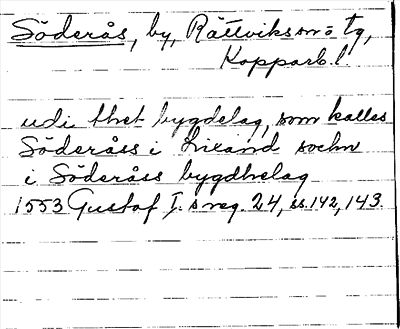 Söderås, by, Rättviks sn o tg,
Kopparb. l.
udi thet bygdelag, som kalles
Söderåss i Lixand sochn
i Söderåss bygdhelag
1553 Gustaf I:s reg. 24, ss. 142, 143.